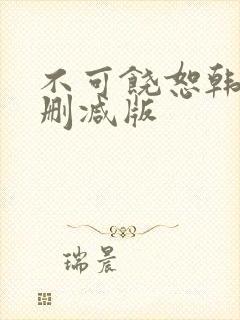 不可饶恕韩
删减版
瑞晨